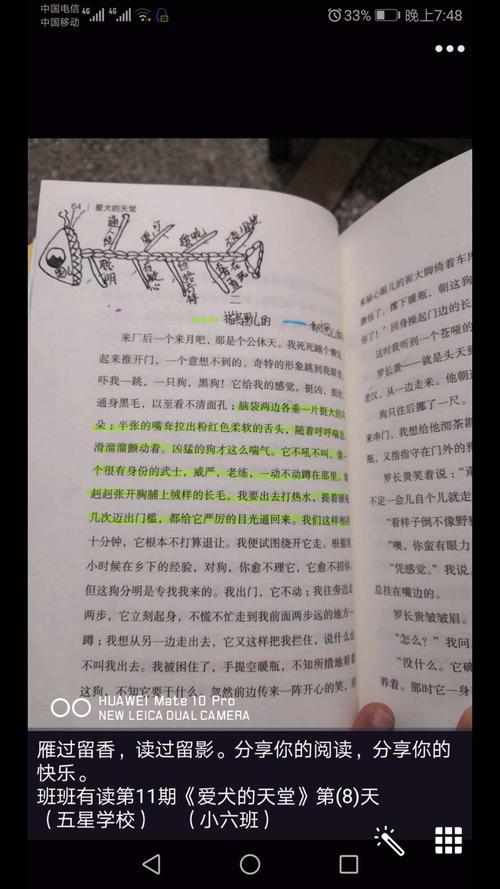 中国电信
中国移动
4G 4G
33% 晚上7:48
64 | 爱犬的天堂
聪明
二
来厂后一个来月吧，那是个公休天。我死死睡个懒
起来推开门，一个意想不到的、奇特的形象跳到我眼
吓我一跳，一只狗，黑狗！它给我的感觉，挺凶，挺
通身黑毛，以至看不清面孔；脑袋两边各垂一片挺大的
朵；半张的嘴奋拉出粉红色柔软的舌头，随着呼呼喘
滑溜溜颤动着。凶猛的狗才这么喘气。它不吼不叫，像
个很有身份的武士，威严，老练，一动不动蹲在那里，
起起张开胸脯上绒样的长毛。我要出去打热水，提着暖
几次迈出门槛，都给它严厉的目光逼回来。我们这样相
十分钟，它根本不打算退让。我便试图绕开它走。根据
小时候在乡下的经验，对狗，你愈不理它，它愈不招
但这狗分明是专找我来的。我出门，它不动；我往旁边
两步，它立刻起身，不慌不忙走到我前面两步远的地方
蹲；我想从另一边走出去，它又这样把我拦住，说什么
不叫我出去。我被困住了，手提空暖瓶，不知所措地看着
这狗，不知它要干什么。忽然前边传来一阵开心的笑，
来缺心眼儿的崔大脚倚着车
激恼了，撂下暖瓶，朝这狗
你了！”回身操起门边的长
这时我听到一个苍哑的
罗长贵——就是头天到
老汉，从一边走来。他朝
狗只往后挪了一尺。
来串门，我想给他沏茶
瓶，又指指守在门外的狗
罗长贵笑着说：“
不定一会儿自个儿就走
“看样子倒不像野
“噢，你蛮有眼力
“凭感觉。”我说
总挂在嘴边的。
罗长贵皱皱眉。
“怎么？”我问
“没什么。它确
养着。那时它一身
HUAWEI Mate 10 Pro
NEW LEICA DUAL CAMERA
雁过留香，读过留影。分享你的阅读，分享你的
快乐。
班班有读第11期《爱犬的天堂》第(8)天
（五星学校） （小六班）